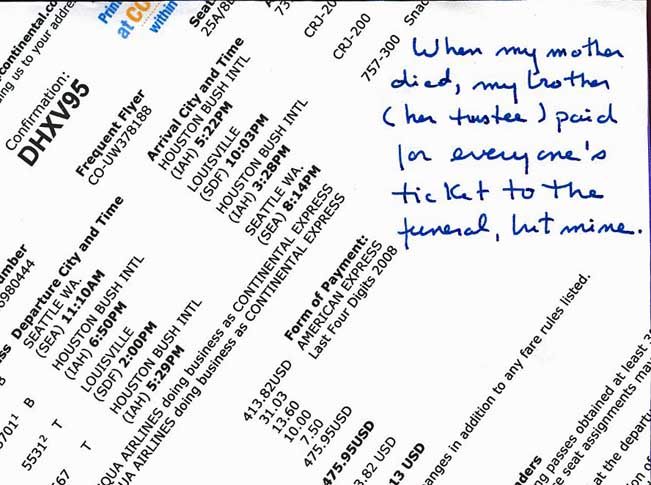 When my mother
died, my brother
(her trustee) paid
for everyone's
ticket to the
funeral, but mine.
continental.co
ng us to your addre
Prin
at CO
within
Confirmation:
DHXV95
Frequent Flyer
CO-UW378188
Arrival City and Time
HOUSTON BUSH INTL
(IAH) 5:22PM
LOUISVILLE
(SDF) 10:03PM
HOUSTON BUSH INTL
(IAH) 3:28PM
SEATTLE WA.
(SEA) 8:14PM
Seat
25A/8
CRJ-20
CRJ-200
757-300 Snac
umber
6980444
ss Departure City and Time
SEATTLE WA.
(SEA) 11:10AM
HOUSTON BUSH INTL
(IAH) 6:50PM
LOUISVILLE
(SDF) 2:00PM
HOUSTON BUSH INTL
(IAH) 5:29PM
B
5701¹ B
5531² T
567 T
QUA AIRLINES doing business as CONTINENTAL EXPRESS
UA AIRLINES doing business as CONTINENTAL EXPRESS
Form of Payment:
AMERICAN EXPRESS
Last Four Digits 2008
413.82USD
31.03
13.60
10.00
7.50
475.95USD
475.95USD
3.82 USD
13 USD
anges in addition to any fare rules listed.
nders
ng passes obtained at least 3
e seat assignments may
at the departu